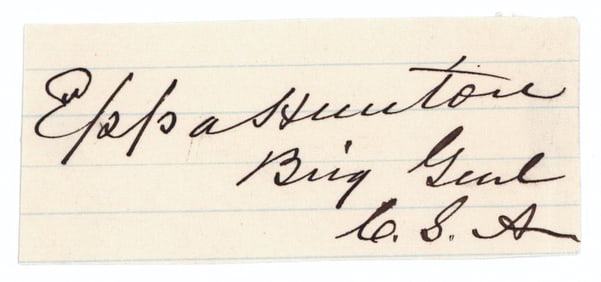 Eppa Hunton
Brig Genl
C. S. A